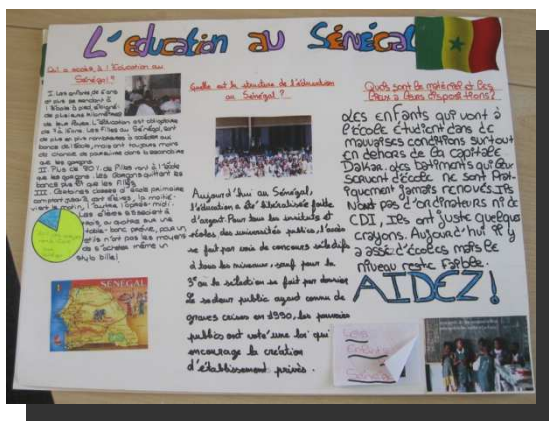 L'éducation au Sénégal
Qui a accès à l'éducation au
Sénégal ?
I. Les enfants de 6 ans
et plus se rendent à
l'école à pied, éloigné
de plusieurs kilomètres
de leur foyer. L'éducation est obligatoire
de 7 à 16 ans. Les filles au Sénégal, sont
de plus en plus nombreuses à accéder aux
bancs de l'école, mais ont toujours moins
de chance de poursuivre dans le secondaire
que les garçons.
II. Plus de 90% de filles vont à l'école
que les garçons. Les garçons quittent les
bancs plus tôt que les filles.
III. Certaines classes d'école primaire
comptent jusqu'à cent élèves, la moitié
vient le matin, l'autre, l'après-midi.
Les élèves s'assoient à
trois, ou quatre sur une
table-banc prévue, pour un
et ils n'ont pas les moyens
de s'acheter même un
stylo bille !
SÉNÉGAL
Quelle est la structure de l'éducation
au Sénégal ?
Aujourd'hui au Sénégal,
l'éducation a été libéralisée faute
d'argent. Pour tous les instituts et
écoles des universités publics, l'accès
se fait par voie de concours sélectifs
à tous les niveaux, sauf pour la
3e où la sélection se fait par dossier
Le secteur public ayant connu de
graves crises en 1990, les pouvoirs
publics ont voté une loi qui
encourage la création
d'établissement privés.
Quels sont les matériels et les
lieux à leurs dispositions ?
Les enfants qui vont à
l'école étudient dans de
mauvaises conditions surtout
en dehors de la capitale
Dakar. Les bâtiments qui leur
servent d'école ne sont prat-
iquement jamais rénovés. Ils
n'ont pas d'ordinateurs ni de
CDI, ils ont juste quelques
crayons. Aujourd'hui il y
a assé d'écoles mais le
niveau reste faible.
AIDEZ !